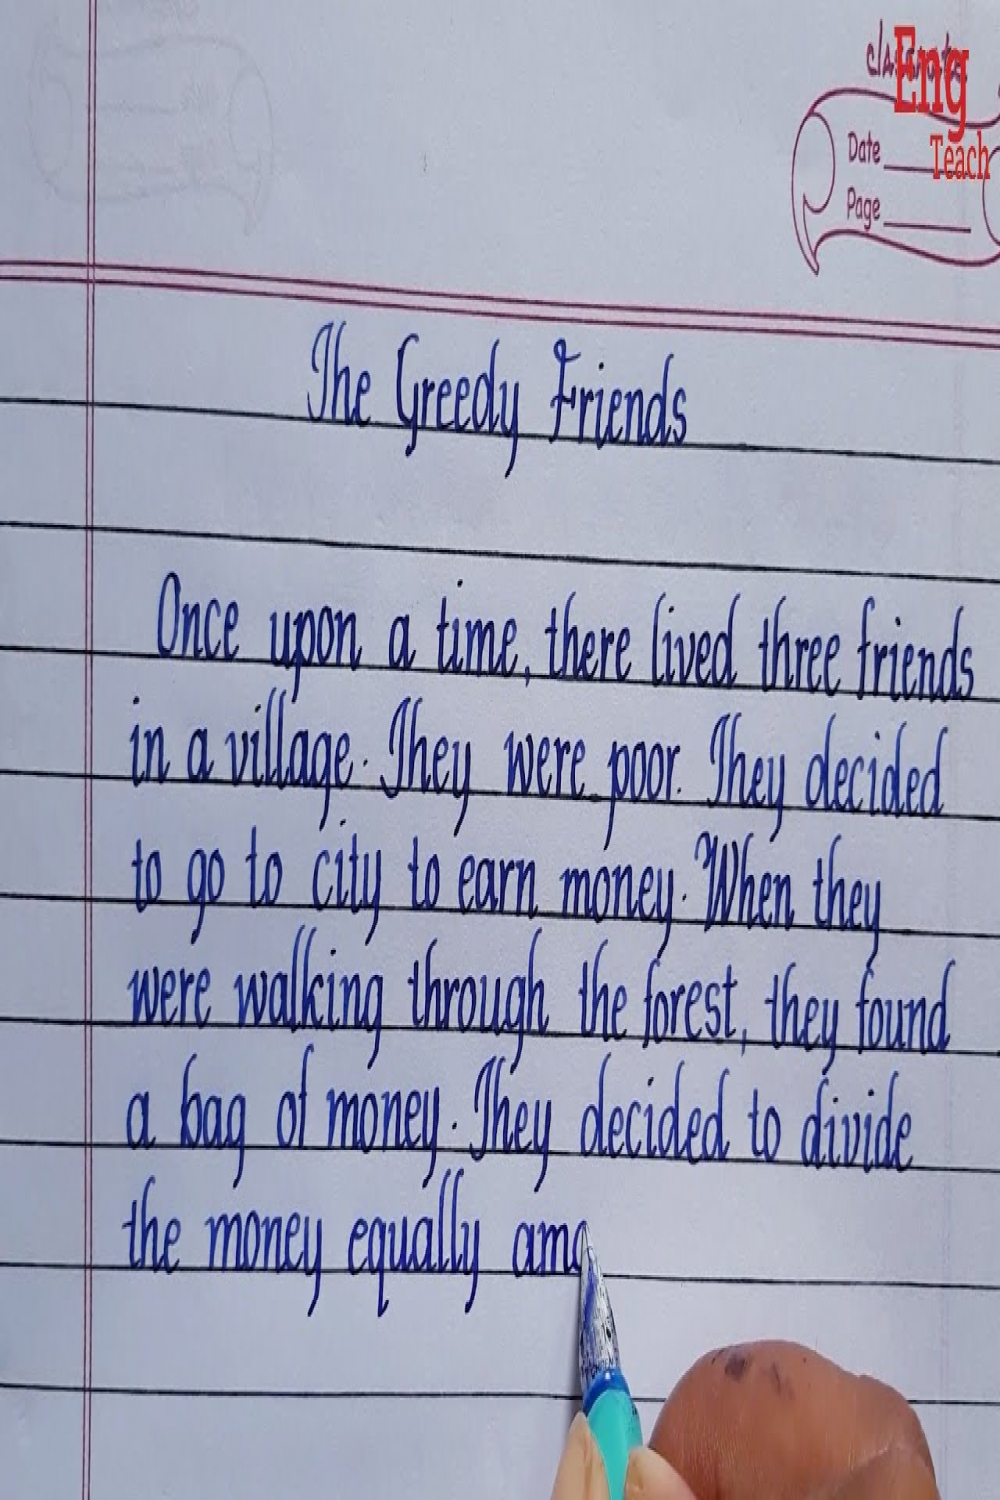 Eng
Teach
classmate
Date
Page
The Greedy Friends
Once upon a time, there lived three friends
in a village. They were poor. They decided
to go to city to earn money. When they
were walking through the forest, they found
a bag of money. They decided to divide
the money equally amo